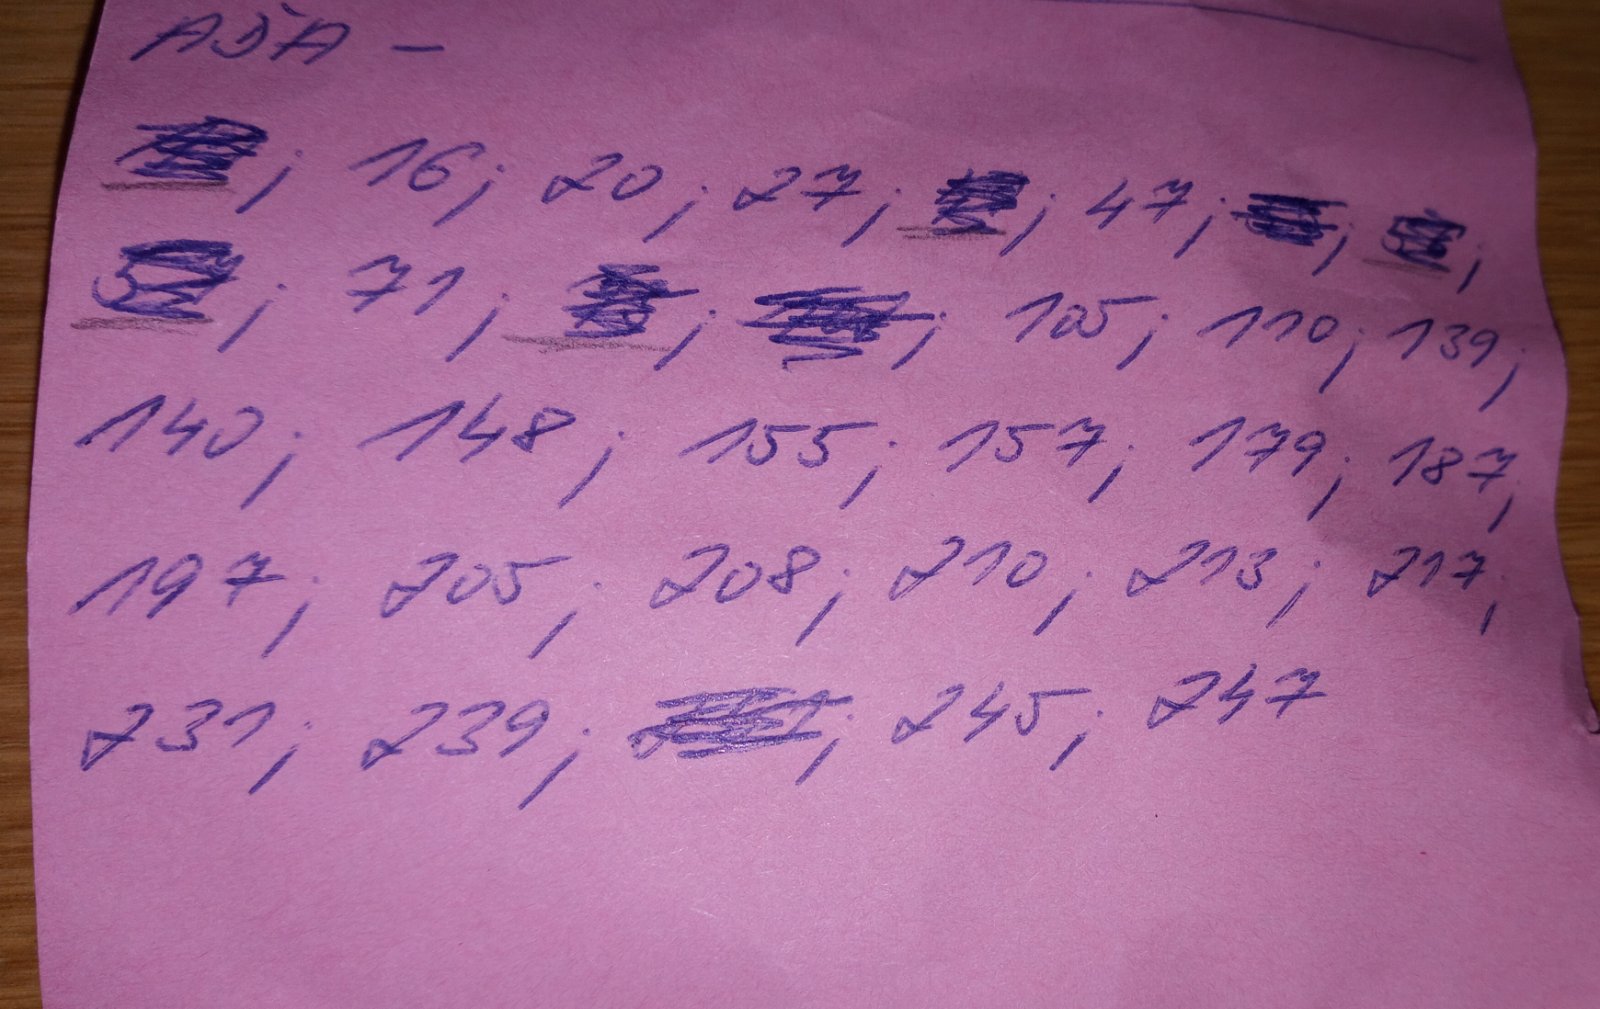 AĐA -
; 16; 20; 27; ; 47; ; ;
; 71; ; ; 105; 110; 139;
140; 148; 155; 157; 179; 187;
197; 205; 208; 210; 213; 217;
231; 239; ; 245; 247